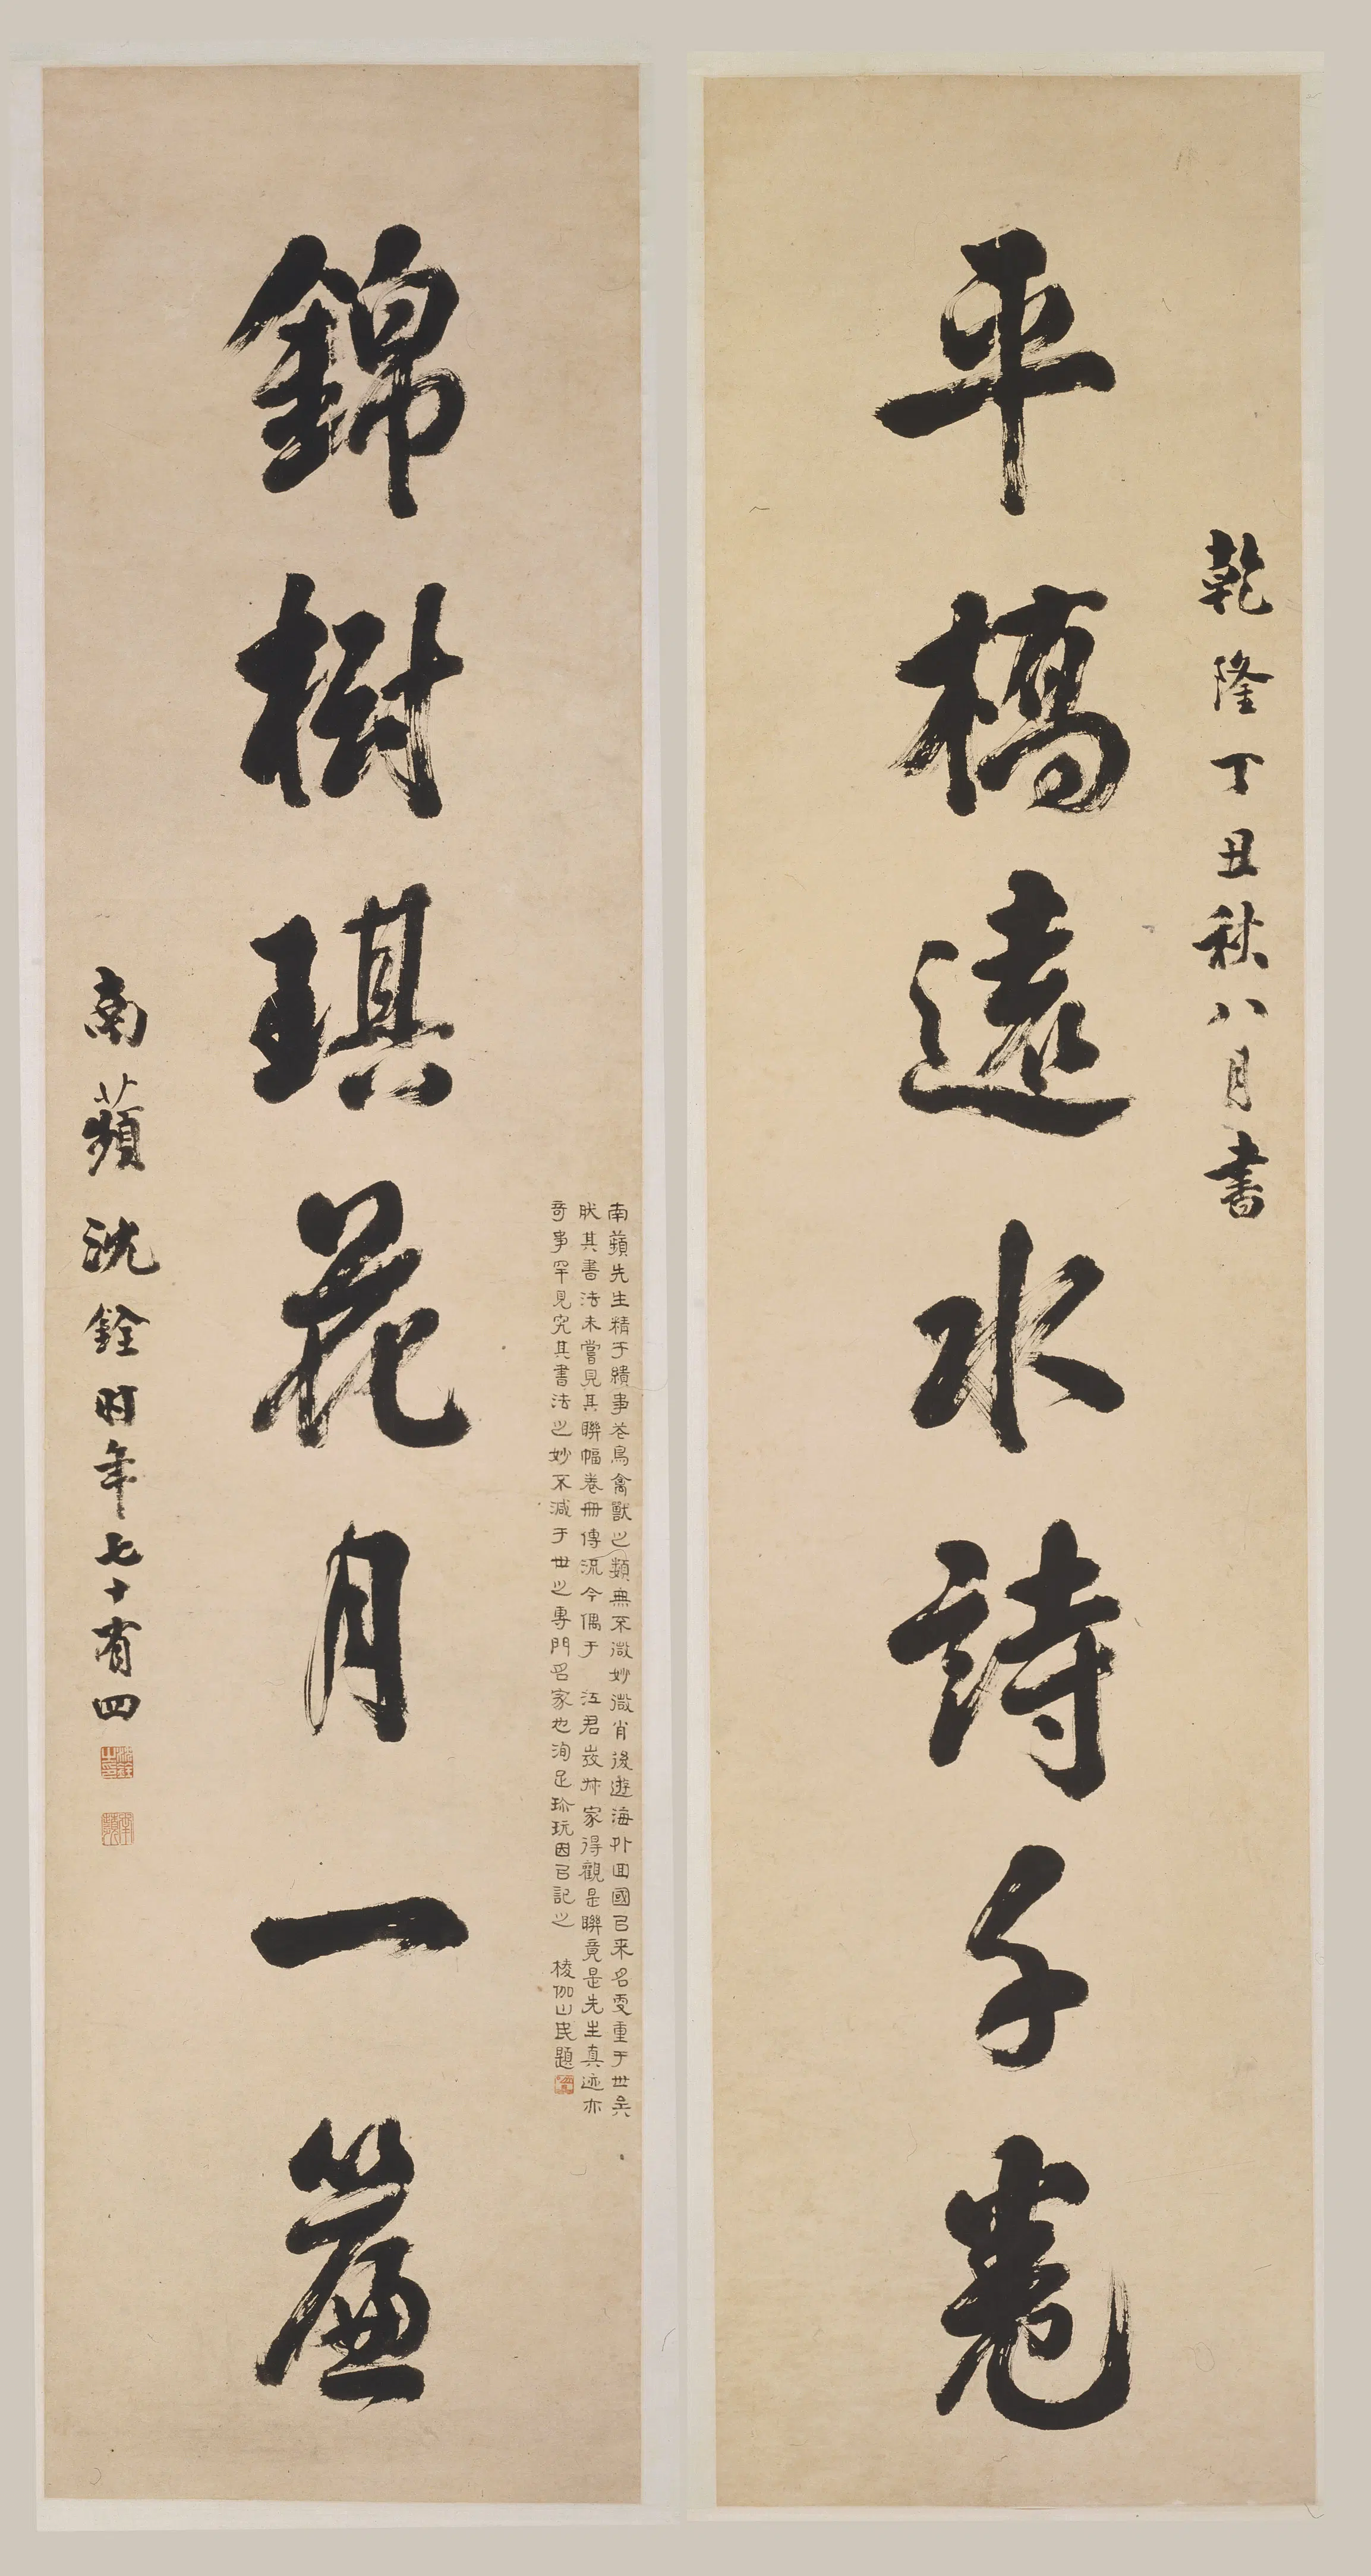 乾隆丁丑秋八月書
平橋遠水詩千卷
錦樹琪花月一簾
南蘋先生精于繢事花鳥禽獸之類無不微妙微肖後遊海外回國㠯来名更重于世矣
肰其書法未嘗見其聯幅卷冊傳流今偶于 江君 家得觀是聯竟是先生真迹亦
奇事罕見究其書法之妙不減于世之專門名家也洵足珍玩因㠯記之 棱伽山民題
南蘋沈銓時年七十有四
沈銓之印
南蘋